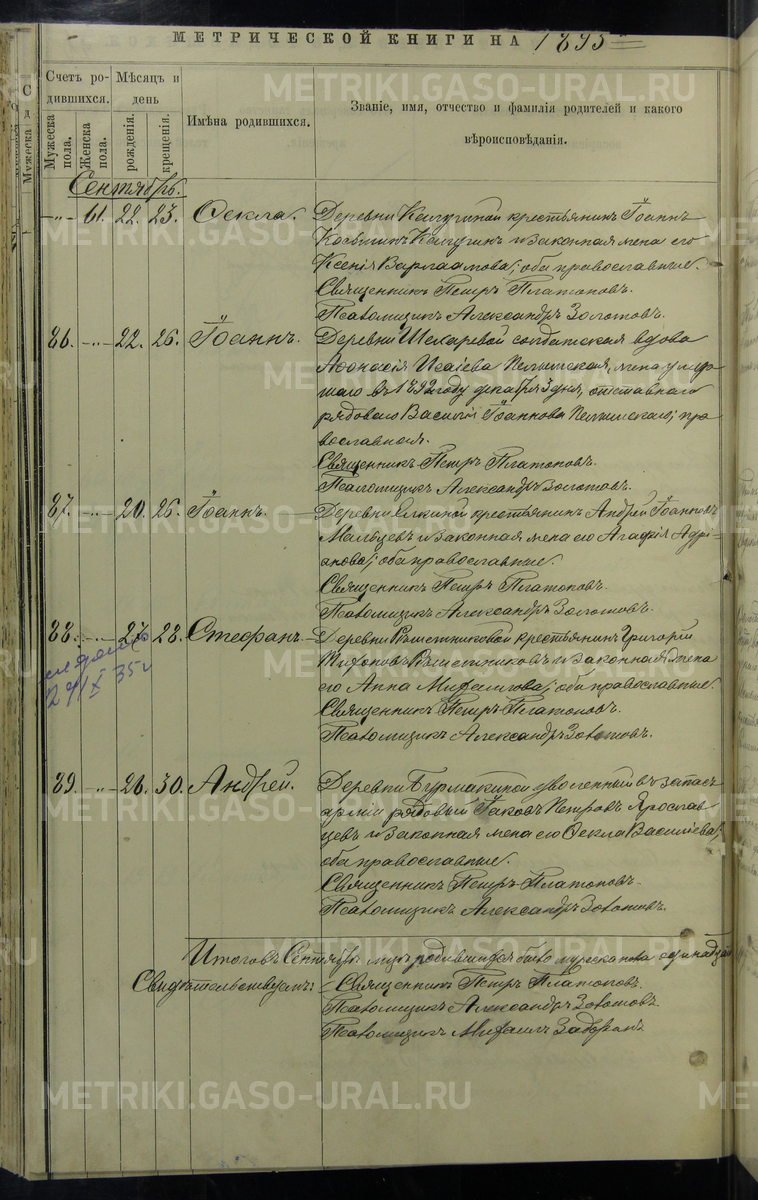 МЕТРИЧЕСКОЙ КНИГИ НА 1895
Счетъ родившихся.
Мѣсяцъ и день
Имена родившихся.
Званіе, имя, отчество и фамилія родителей и какого вѣроисповѣданія.
Мужеска пола.
Женска пола.
рожденія.
крещенія.
Сентябрь.
-„- 61. 22. 23. Ѳекла. Деревни Калугиной крестьянинъ Іоаннъ
Козьминъ Калугинъ и законная жена его
Ксенія Варлаамова; оба православные.
Священникъ Петръ Платоновъ.
Псаломщикъ Александръ Золотовъ.
86. -„- 22. 26. Іоаннъ. Деревни солдатская вдова
Аѳонасія Исаіева жена умер-
шаго въ 1892 году декабря 3 дня, отставнаго
рядоваго Василія Іоаннова пра-
вославная.
Священникъ Петръ Платоновъ.
Псаломщикъ Александръ Золотовъ.
87. -„- 20. 26. Іоаннъ. Деревни Елкиной крестьянинъ Андрей Іоанновъ
Мальцевъ и законная жена его Агафія Адрі-
анова; оба православные.
Священникъ Петръ Платоновъ.
Псаломщикъ Александръ Золотовъ.
88. -„- 27. 28. Стефанъ. Деревни Рѣшетниковой крестьянинъ Григорій
Рѣшетниковъ и законная жена
его Анна оба православные.
Священникъ Петръ Платоновъ.
Псаломщикъ Александръ Золотовъ.
35 г
89. -„- 26. 30. Андрей. Деревни Бурмакиной уволенный въ запасъ
арміи рядовый Іаковъ Петровъ Ярослав-
цевъ и законная жена его Ѳекла Василіева;
оба православные.
Священникъ Петръ Платоновъ.
Псаломщикъ Александръ Золотовъ.
Итого въ Сентябрѣ родившихся было мужеска пола
Свидѣтельствуемъ: Священникъ Петръ Платоновъ.
Псаломщикъ Александръ Золотовъ
Псаломщикъ Михаилъ
METRIKI.GASO-URAL.RU